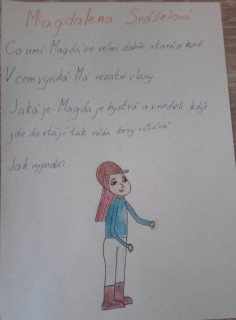 Magdalena Snášelová
Co umí: Magda se velmi dobře stará o koně.
V čem vyniká: Má rezaté vlasy.
Jaká je: Magda je bystrá a v neděli když
jde do stájí tak ráda brzy vstává
Jak vypadá: